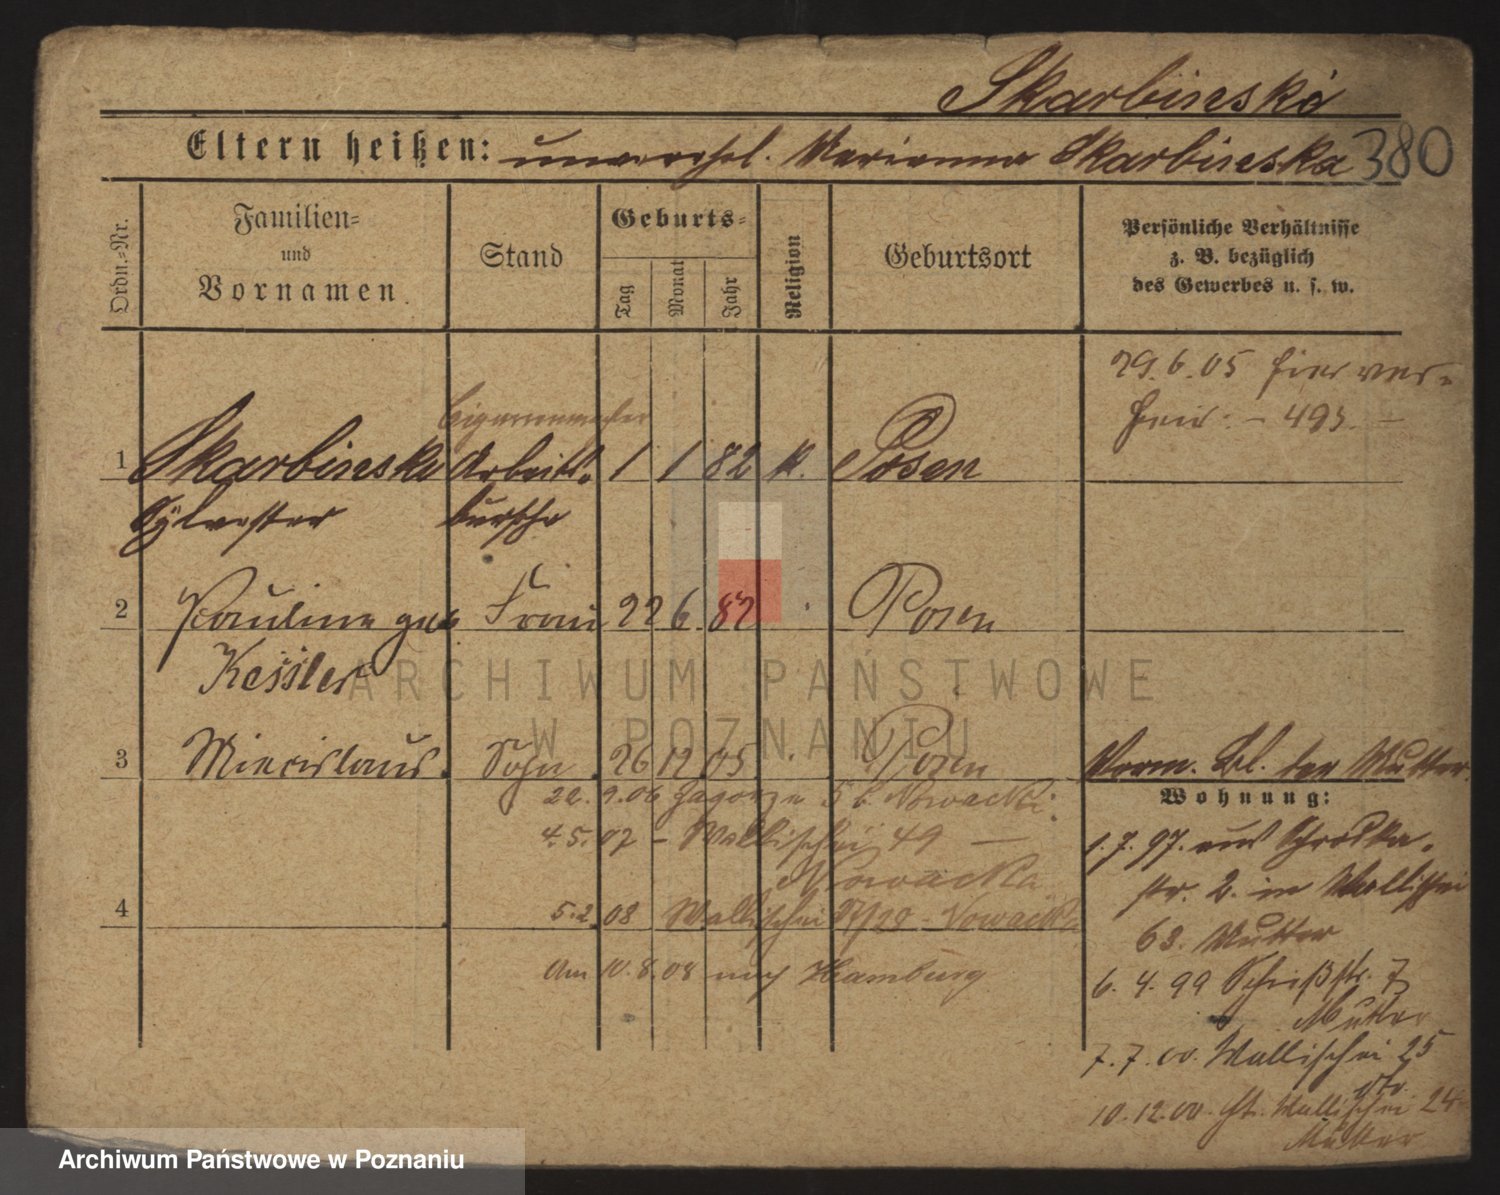 Skarbinski
Eltern heißen: unverehel. Marianna Skarbinska 380
Ordn.-Nr.
Familien- und Vornamen.
Stand
Geburts-
Tag
Monat
Jahr
Religion
Geburtsort
Persönliche Verhältnisse
z. B. bezüglich
des Gewerbes u. s. w.
29.6.05 hier ver-
heir. - 493. -
Cigarrenmacher
1 Skarbinski Arbeits- 1 1 82 k. Posen
Sylvester bursche
2 Pauline geb Frau 22 6 82 Posen
Kessler
3 Miecislaus Sohn 26 12 05 Posen
Vorm. Bl. der Mutter
22.9.06 Zagorze 5 b. Nowacki
4.5.07 - Wallischei 49 -
Nowacka
4
5.2.08 Wallischei 27/28 - Nowacki
Am 10.8.08 nach Hamburg
Wohnung:
1.7.97. aus Schrodka-
str. 2. in Wallischei
63. Mutter
6.4.99 7
Mutter
7.7.00. Wallischei 25
10.12.00. Wallischei 24
Mutter
ARCHIWUM PAŃSTWOWE
W POZNANIU
Archiwum Państwowe w Poznaniu